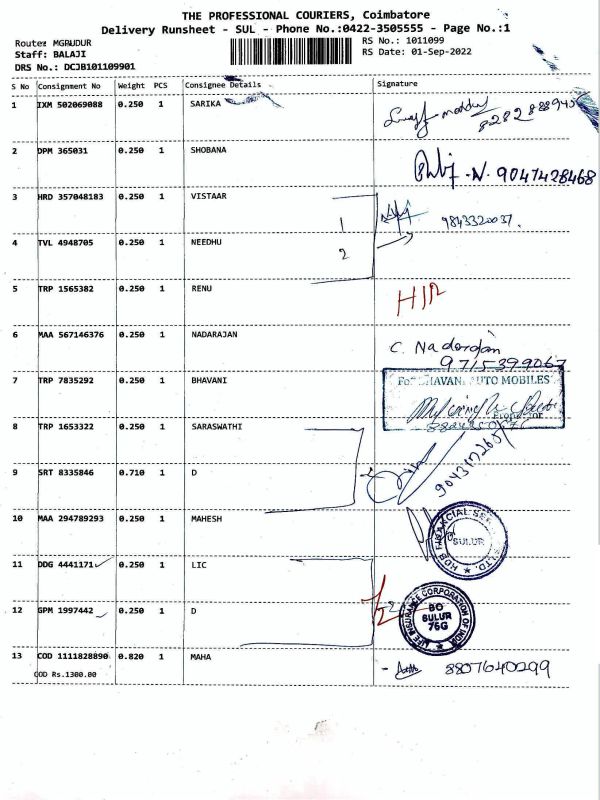 THE PROFESSIONAL COURIERS, Coimbatore
Delivery Runsheet - SUL - Phone No.:0422-3505555 - Page No.:1
Route: MGPUDUR
RS No.: 1011099
Staff: BALAJI
RS Date: 01-Sep-2022
DRS No.: DCJB101109901
S No Consignment No Weight PCS Consignee Details Signature
1 IXM 502069088 0.250 1 SARIKA
8282888945
2 DPM 365031 0.250 1 SHOBANA
N. 9047428468
3 HRD 357048183 0.250 1 VISTAAR
1 9843320037.
4 TVL 4948705 0.250 1 NEEDHU
2
5 TRP 1565382 0.250 1 RENU
6 MAA 567146376 0.250 1 NADARAJAN
C. Nadarajan
9715399067
7 TRP 7835292 0.250 1 BHAVANI
AUTO MOBILES
8 TRP 1653322 0.250 1 SARASWATHI
9 SRT 8335846 0.710 1 D
10 MAA 294789293 0.250 1 MAHESH
HDB FINANCIAL SER LTD.
SULUR
11 DDG 4441171 0.250 1 LIC
12 GPM 1997442 0.250 1 D
2
LIFE INSURANCE CORPORATION OF INDIA
BO
SULUR
76G
13 COD 1111828890 0.820 1 MAHA
8807640299
COD Rs.1300.00